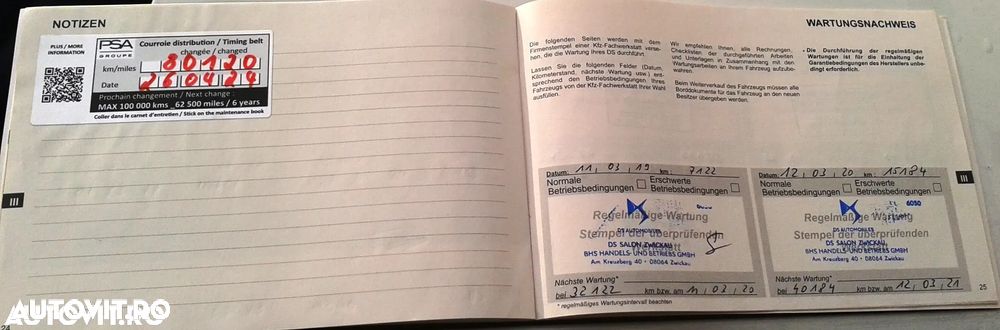 NOTIZEN
PLUS / MORE
INFORMATION
PSA
GROUPE
Courroie distribution / Timing belt
changée / changed
km/miles 80120
Date 260424
Prochain changement / Next change :
MAX 100 000 kms _62 500 miles / 6 years
Coller dans le carnet d'entretien / Stick on the maintenance book
III
24
AUTOVIT.RO
WARTUNGSNACHWEIS
Die folgenden Seiten werden mit dem
Firmenstempel einer Kfz-Fachwerkstatt verse-
hen, die die Wartung Ihres DS durchführt.
Lassen Sie die folgenden Felder (Datum,
Kilometerstand, nächste Wartung usw.) ent-
sprechend den Betriebsbedingungen, Ihres
Fahrzeugs von der Kfz-Fachwerkstatt Ihrer Wahl
ausfüllen.
Wir empfehlen Ihnen, alle Rechnungen,
Checklisten der durchgeführten Arbeiten
und Unterlagen in Zusammenhang mit den
Wartungsarbeiten an Ihrem Fahrzeug aufzube-
wahren.
Beim Weiterverkauf des Fahrzeugs müssen alle
Borddokumente für das Fahrzeug an den neuen
Besitzer übergeben werden.
- Die Durchführung der regelmäßigen
Wartungen ist für die Einhaltung der
Garantiebedingungen des Herstellers unbe-
dingt erforderlich.
Datum: 11, 03, 19 km: 7122
Normale
Betriebsbedingungen
Erschwerte
Betriebsbedingungen
Regelmäßige Wartung
DS AUTOMOBILES
Stempel der überprüfenden
DS SALON ZWICKAU
BHS HANDELS- UND BETRIEBS GMBH
Am Kreuzberg 40 · 08064 Zwickau
Nächste Wartung*
bei 32122 km bzw. am 11, 03, 20
* regelmäßiges Wartungsintervall beachten
Datum: 12, 03, 20 km: 15184
Normale
Betriebsbedingungen
Erschwerte
Betriebsbedingungen
6030
Regelmäßige Wartung
DS AUTOMOBILES
Stempel der überprüfenden
DS SALON ZWICKAU
BHS HANDELS- UND BETRIEBS GMBH
Am Kreuzberg 40 · 08064 Zwickau
Nächste Wartung*
bei 40184 km bzw. am 12, 03, 21
III
25